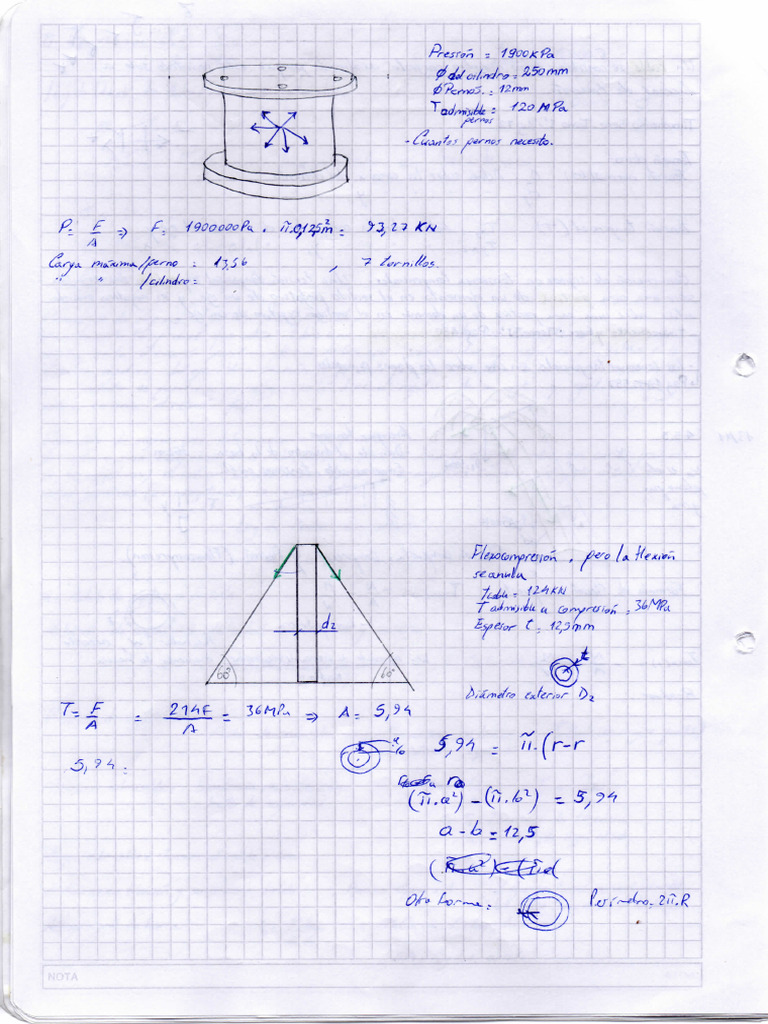 Presión = 1900kPa
Ø del cilindro = 250mm
Ø Pernos = 12mm
T admisible = 120 MPa
pernos
- Cuantos pernos necesito.
P = F/A => F = 1900000Pa . π.0,125m² = 93,27 KN
Carga máxima/perno = 13,56 , 7 tornillos.
" " /cilindro =
Flexocompresión, pero la flexión
se anula
= 124KN
T admisible a compresión = 36MPa
Espesor t = 12,5mm
d2
60°
60°
t
Diámetro exterior D2
T = F/A = 214F/A = 36MPa => A = 5,94
a
b
5,94 = π.(r-r
5,94 =
(π.a²) - (π.b²) = 5,94
a - b = 12,5
Otra forma =
Perímetro = 2π.R
NOTA